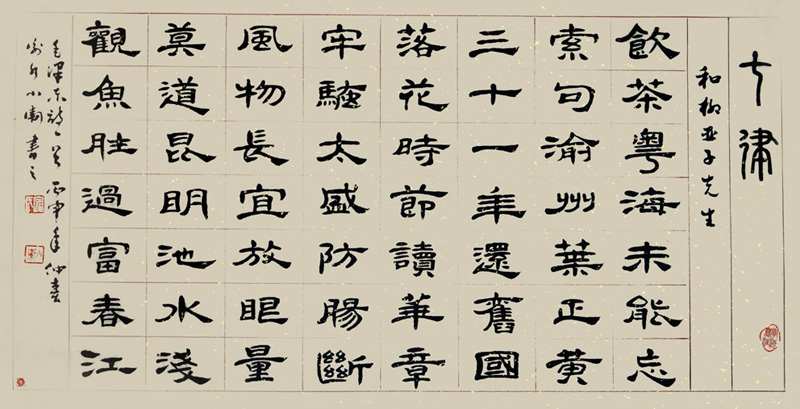 七律
和柳亚子先生
飲茶粵海未能忘
索句渝州葉正黄
三十一年還舊國
落花時節讀華章
牢騷太盛防腸斷
風物長宜放眼量
莫道昆明池水淺
觀魚胜過富春江
毛澤东詩一首 丙申年仲春
書之